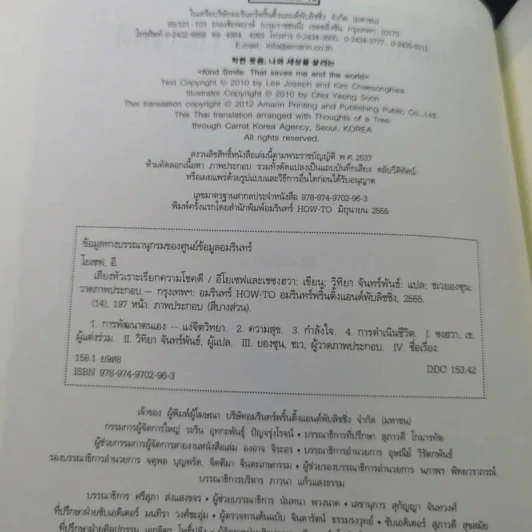 ในเครือบริษัทอมรินทร์พริ้นติ้งแอนด์พับลิชชิ่ง จำกัด (มหาชน)
กรุงเทพฯ 10170
โทรศัพท์ 0-2422-9999 ต่อ 4964, 4969
E-mail: info@amarin.co.th
착한 웃음: 나와 세상을 살리는
<Kind Smile: That saves me and the world>
Text Copyright © 2010 by Lee Joseph and Kim Chaesonghwa
Illustrator Copyright © 2010 by Choi Yeong Soon
Thai translation copyright © 2012 Amarin Printing and Publishing Public Co., Ltd.
This Thai translation arranged with Thoughts of a Tree
through Carrot Korea Agency, Seoul, KOREA
All rights reserved.
สงวนลิขสิทธิ์หนังสือเล่มนี้ตามพระราชบัญญัติ พ.ศ. 2537
ห้ามคัดลอกเนื้อหา ภาพประกอบ รวมทั้งดัดแปลงเป็นแถบบันทึกเสียง ตลับวีดิทัศน์
หรือเผยแพร่ด้วยรูปแบบและวิธีการอื่นใดก่อนได้รับอนุญาต
เลขมาตรฐานสากลประจำหนังสือ 978-974-9702-96-3
พิมพ์ครั้งแรกโดยสำนักพิมพ์อมรินทร์ HOW-TO มิถุนายน 2555
ข้อมูลทางบรรณานุกรมของศูนย์ข้อมูลอมรินทร์
โยเซฟ, อี.
เสียงหัวเราะเรียกความโชคดี / อีโยเซฟและแชซงฮวา: เขียน; วิทิยา จันทร์พันธ์: แปล; ชเวยองซุน:
วาดภาพประกอบ.-- กรุงเทพฯ: อมรินทร์ HOW-TO อมรินทร์พริ้นติ้งแอนด์พับลิชชิ่ง, 2555.
(14), 197 หน้า: ภาพประกอบ (สีบางส่วน).
1. การพัฒนาตนเอง -- แง่จิตวิทยา. 2. ความสุข. 3. กำลังใจ. 4. การดำเนินชีวิต. I. ซงฮวา, แช,
ผู้แต่งร่วม. II. วิทิยา จันทร์พันธ์, ผู้แปล. III. ยองซุน, ชเว, ผู้วาดภาพประกอบ. IV. ชื่อเรื่อง.
158.1 ย9ส8
DDC 153.42
ISBN 978-974-9702-96-3
เจ้าของ ผู้พิมพ์ผู้โฆษณา บริษัทอมรินทร์พริ้นติ้งแอนด์พับลิชชิ่ง จำกัด (มหาชน)
กรรมการผู้จัดการใหญ่ ระริน อุทกะพันธุ์ ปัญจรุ่งโรจน์ • บรรณาธิการที่ปรึกษา สุภาวดี โกมารทัต
ผู้ช่วยกรรมการผู้จัดการสายงานหนังสือเล่ม องอาจ จิระอร • บรรณาธิการอำนวยการ อุษณีย์ วิรัตกพันธ์
รองบรรณาธิการอำนวยการ จตุพล บุญพรัด, จิตติมา จินตะเกษกรรม • ผู้ช่วยรองบรรณาธิการอำนวยการ นภาพร พิทยวราภรณ์
บรรณาธิการบริหาร ภาวนา แก้วแสงธรรม
บรรณาธิการ ศรีสุภา ส่งแสงขจร • ผู้ช่วยบรรณาธิการ นันทนา พวงนาค • เลขานุการ สุกัญญา จันทวงศ์
ที่ปรึกษาฝ่ายซับเอดิเตอร์ มนทิรา วงศ์ชะอุ่ม • ผู้ตรวจทานต้นฉบับ จินดารัตน์ ธรรมรงวุทย์ • ซับเอดิเตอร์ สุภาวดี สุขสมัย
ที่ปรึกษาฝ่ายศิลปกรรม